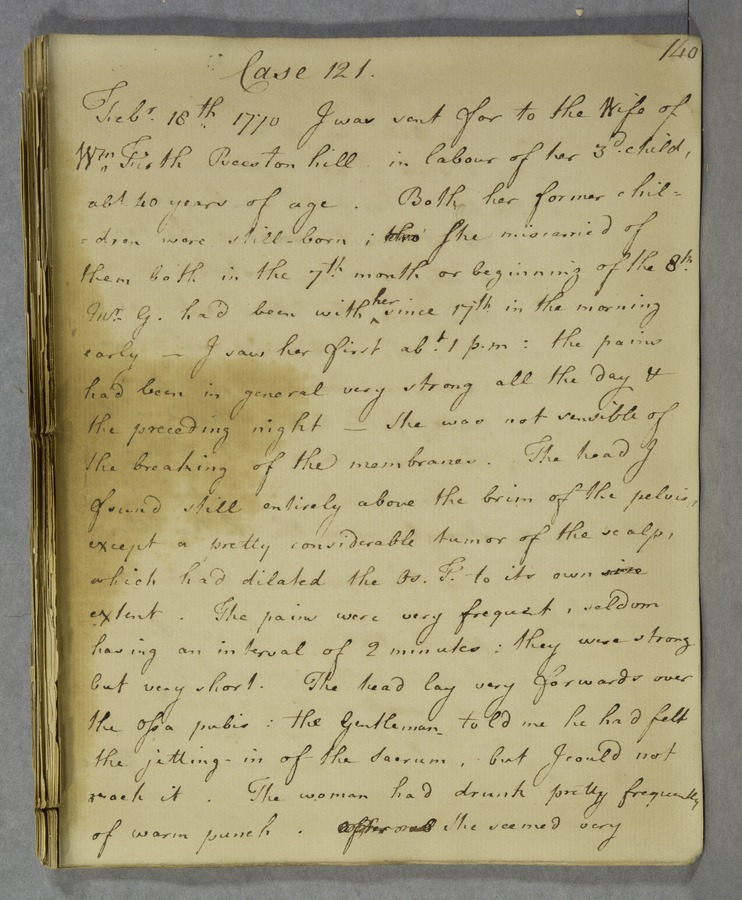 140
Case 121.
Febr. 18th 1770 I was sent for to the Wife of
Wm Firth Beeston hill in labour of her 3d. child,
abt 40 years of age. Both her former chil=
=dren were still-born; tho' She miscarried of
them both in the 7th month or beginning of the 8th.
Mr. G. had been with her since 17th in the morning
early — I saw her first abt. 1 p.m: the pains
had been in general very strong all the day &
the preceding night — She was not sensible of
the breaking of the membranes. The head I
found still entirely above the brim of the pelvis,
except a pretty considerable tumor of the scalp,
which had dilated the Os. T. to its own size
extent. The pains were very frequent, seldom
having an interval of 2 minutes: they were strong
but very short. The head lay very forwards over
the ossa pubis: the Gentleman told me he had felt
the jetting-in of the Sacrum, but I could not
reach it. The woman had drunk pretty frequently
of warm punch. She seemed very